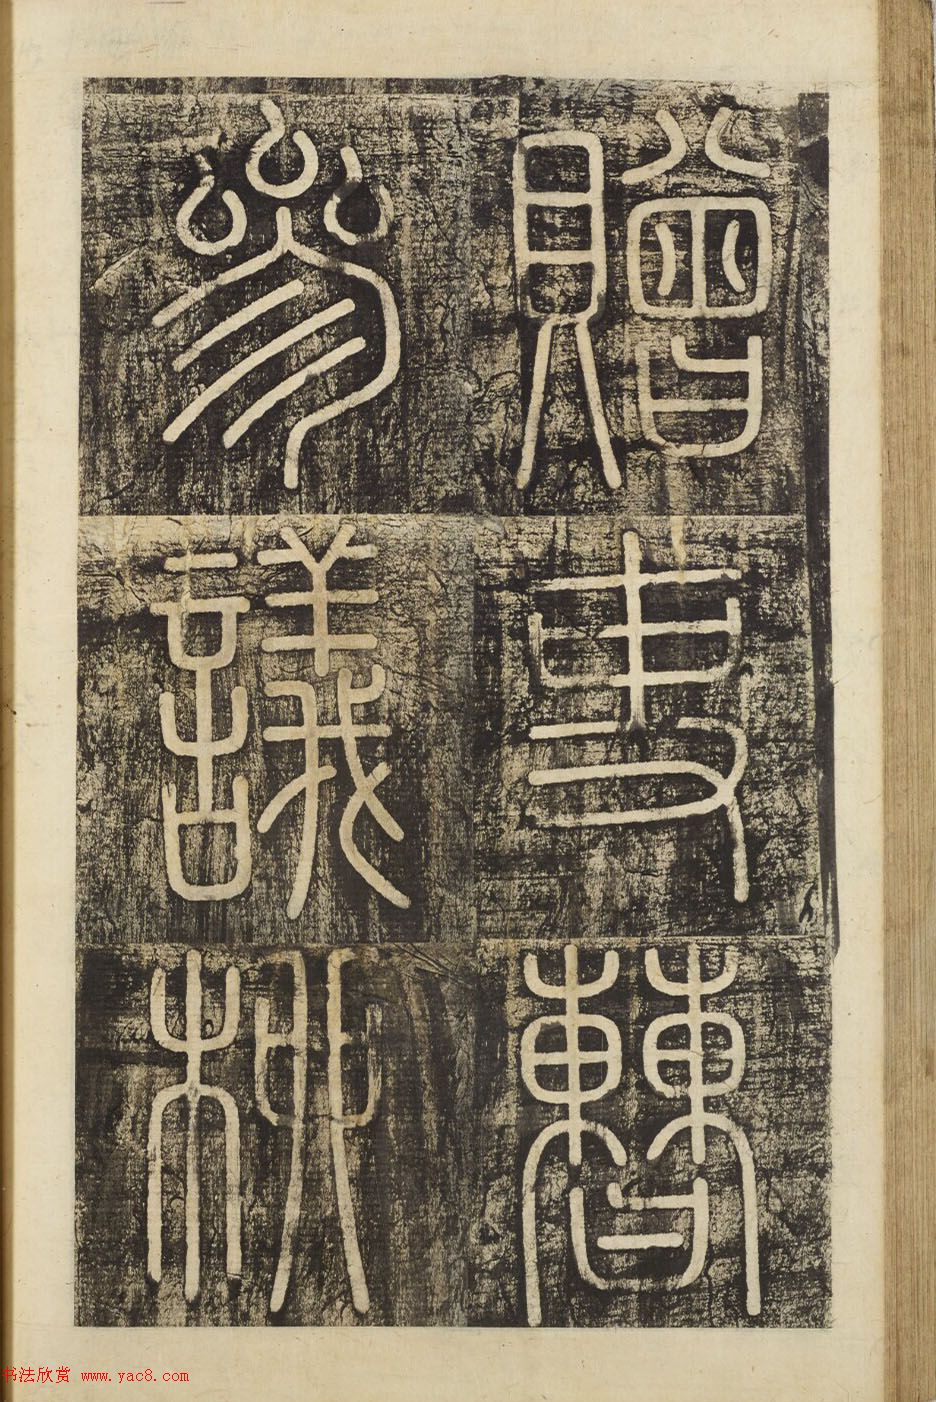 贈吏曹
參議柳
书法欣赏 www.yac8.com